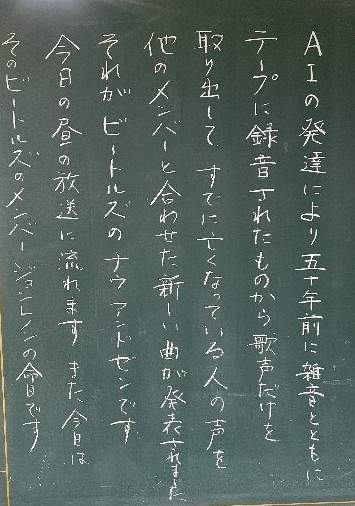 AIの発達により五十年前に雑音とともに
テープに録音されたものから歌声だけを
取り出して、すでに亡くなっている人の声を
他のメンバーと合わせた新しい曲が発表されました
それがビートルズのナウアンドゼンです
今日の昼の放送に流れます また今日は
そのビートルズのメンバー ジョンレノンの命日です